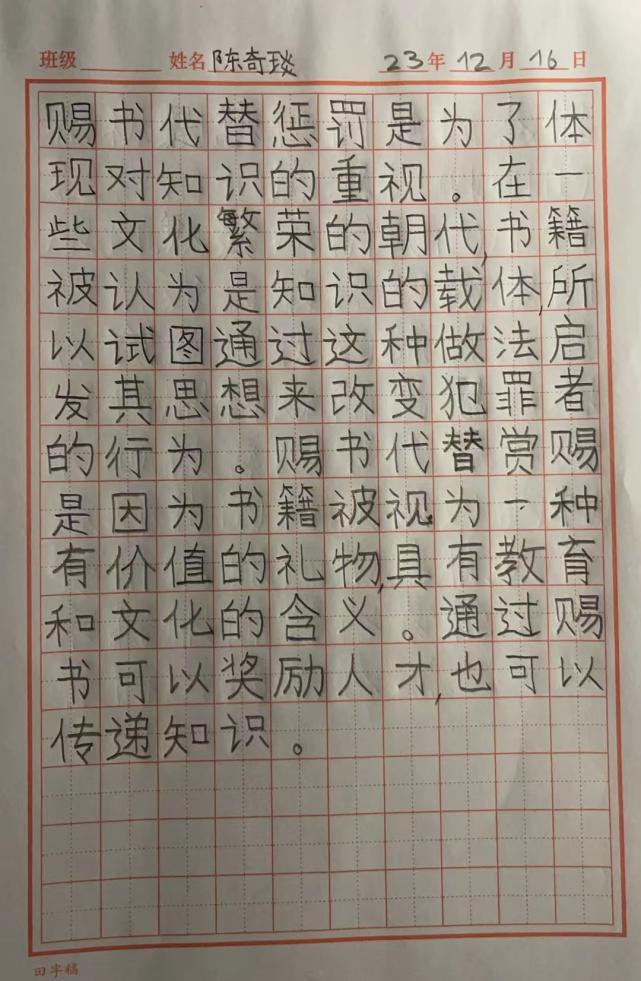 班级 姓名 陈奇琰 23年12月16日
赐书代替惩罚是为了体
现对知识的重视。在一
些文化繁荣的朝代,书籍
被认为是知识的载体,所
以试图通过这种做法启
发其思想来改变犯罪者
的行为。赐书代替赏赐
是因为书籍被视为一种
有价值的礼物,具有教育
和文化的含义。通过赐
书可以奖励人才,也可以
传递知识。
田字稿